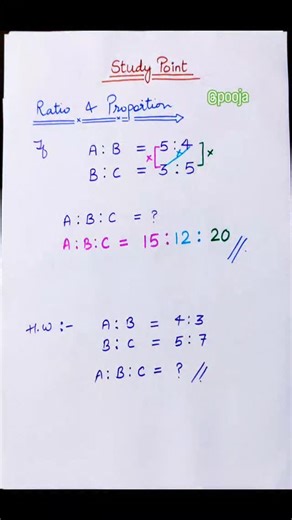 Study Point
@pooja
Ratio & Proportion
If A : B = 5 : 4
B : C = 3 : 5
A : B : C = ?
A : B : C = 15 : 12 : 20 //
H.W :- A : B = 4 : 3
B : C = 5 : 7
A : B : C = ? //